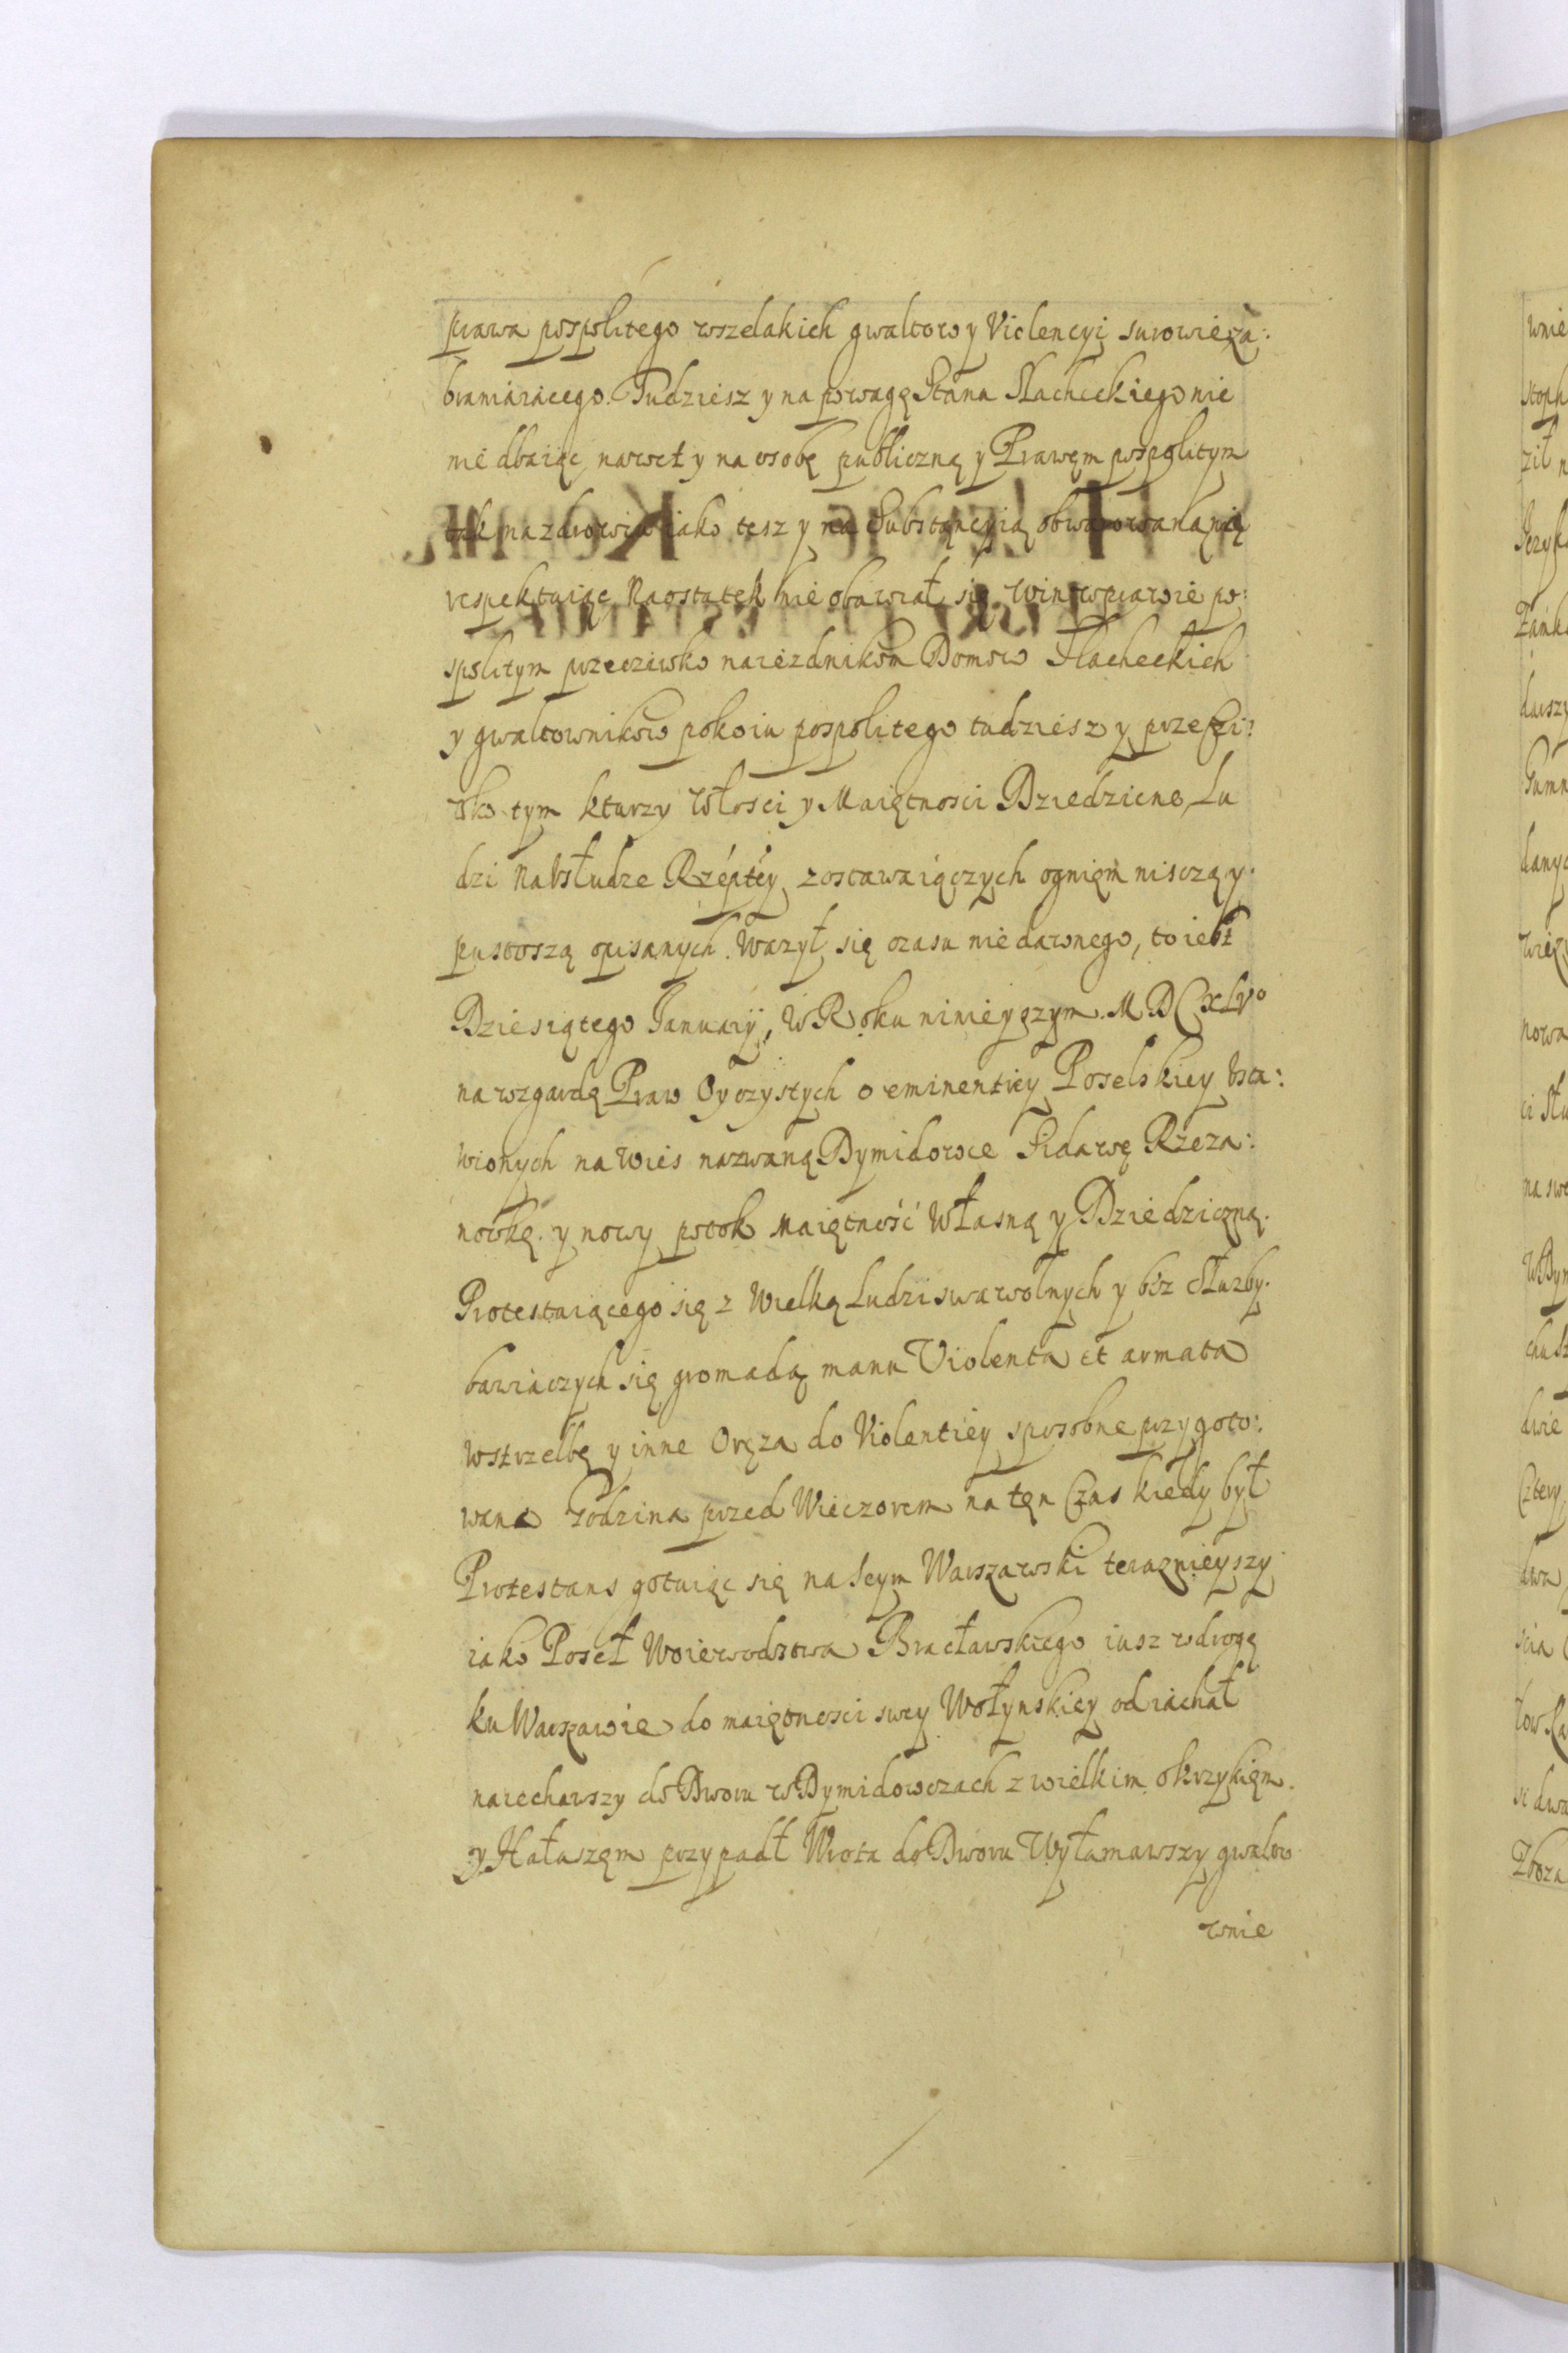 prawa pospolitego wszelakich gwaltow y Violencyi surowie za:
braniaiacego. Tudziesz y na powagę Stanu Slachcekiego nie
nie dbaiąc, nawet y na osobę publiczną y Prawęm pospolitym
tak na zdrowiu iako tesz y na Substąncyią obwarowaną nię
respektuiąc Naostatek nie obawiał się win w prawie po:
spolitym przeciwko naiezdnikom Domow Slacheckich
y gwaltownikow pokoiu pospolitego tudziesz y przeczi:
wko tym kturzy Włosci y Maiętnosci Dziedzicne, Lu
dzi na Vsłudze Rzéptéy zostawaiączych ognięm nisczą y
pustoszą opisanych. Wazył się czasu niedawnego, to iest
Dziesiątego Januarij, W Roku ninieyszym. MDCXLVo
na wzgardę Praw Oyczystych o eminentiey Poselskiey Vsta:
wionych na Wies nazwaną Dymidowce Fidawę Rzeza:
nowkę. y nowy potok Maiętność Własną y Dziedziczną.
Protestuiącego się z Wielką Ludzi swawolnych y bez Słuzby.
bawiaczych się gromadą manu Violenta et armata
w strzelbę y inne Oręza do Violentiey sposobne przygoto:
wana Godzina przed Wieczorem na tęn Czas kiedy był
Protestans gotuiąc się na Seym Warszawski teraznieyszy
iako Poseł Woiewodstwa Bracławskiego iusz w drogę
ku Warszawie do maiętnosci swey Wołynskiey odiachał
naiechawszy do Dworu w Dymidowczach z wielkim okrzykięm.
y Hałaszęm przypadł Wrota do Dworu Wyłamawszy gwałto
wnie